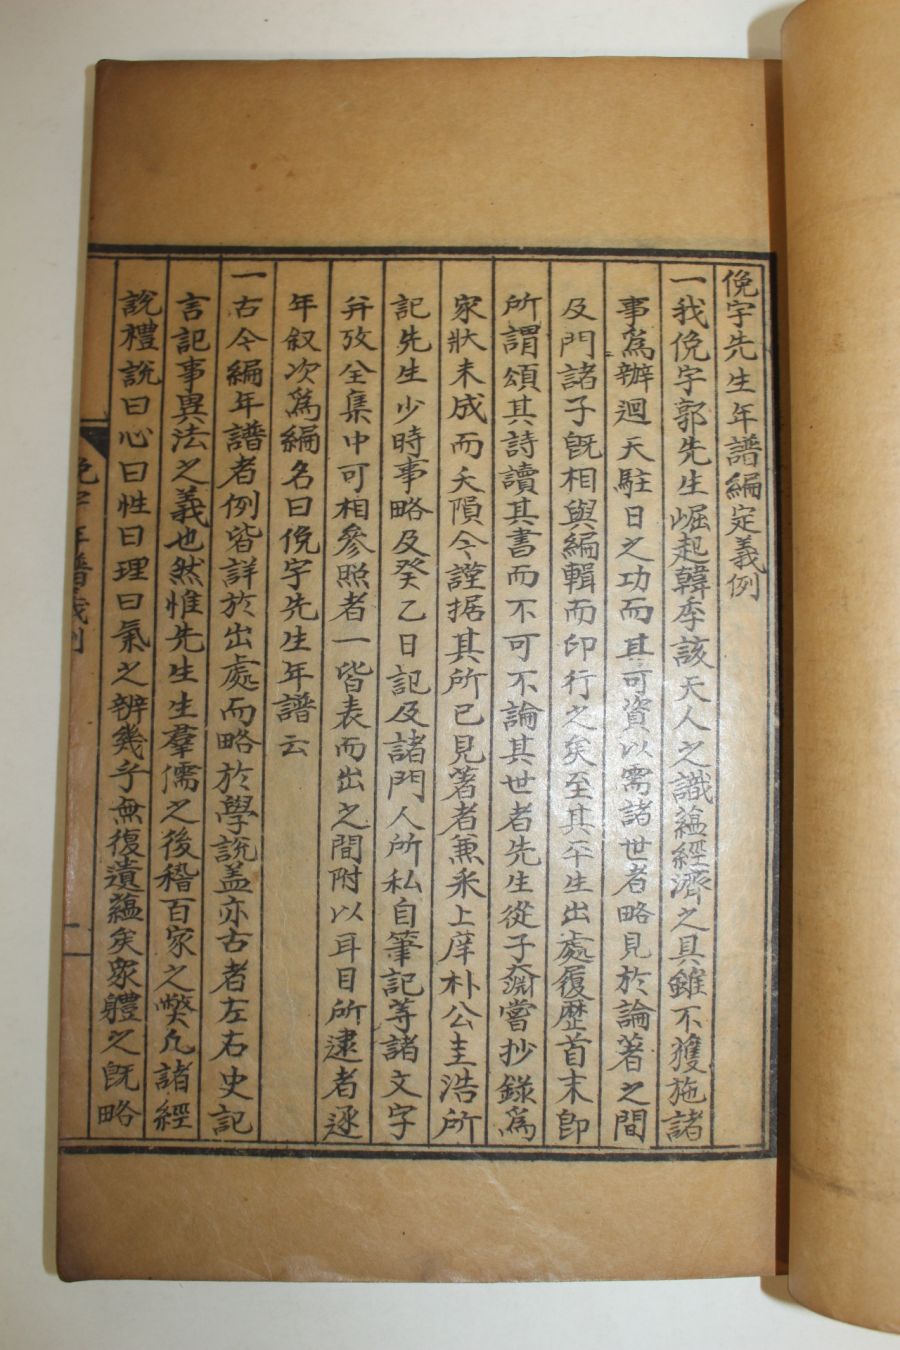 俛宇先生年譜編定義例
一我俛宇郭先生崛起韓季該天人之識蘊經濟之具雖不獲施諸
事爲辦迴天駐日之功而其可資以需諸世者略見於論著之間
及門諸子旣相與編輯而印行之矣至其平生出處履歷首末卽
所謂頌其詩讀其書而不可不論其世者先生從子奫嘗抄錄爲
家狀未成而夭隕今謹据其所已見著者兼釆上庠朴公圭浩所
記先生少時事略及癸乙日記及諸門人所私自筆記等諸文字
幷攷全集中可相參照者一皆表而出之間附以耳目所逮者逐
年叙次爲編名曰俛宇先生年譜云
一古今編年譜者例皆詳於出處而略於學說盖亦古者左右史記
言記事異法之義也然惟先生生羣儒之後稽百家之獘凡諸經
說禮說曰心曰性曰理曰氣之辨幾乎無復遺蘊矣衆體之旣略
俛宇年譜義例 一